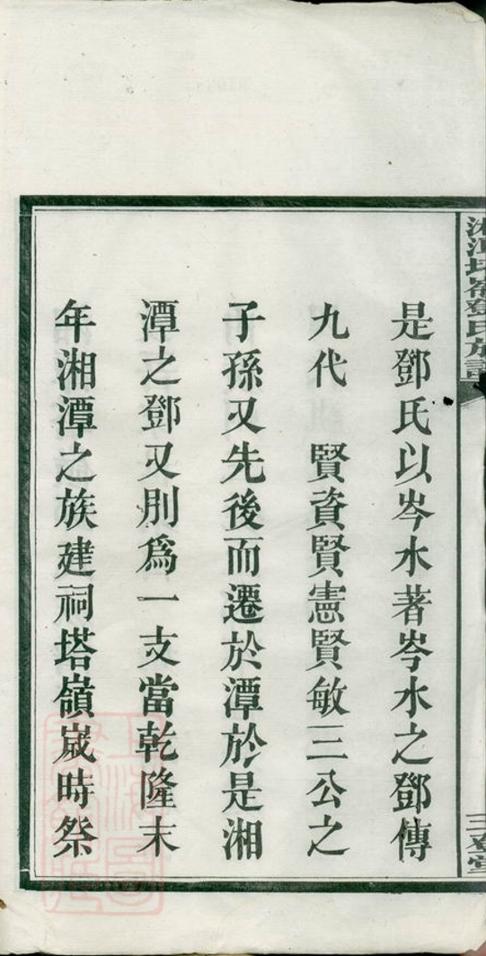 湘潭塔嶺鄧氏族譜
三登堂
是鄧氏以岑水著岑水之鄧傳
九代　賢資賢憲賢敏三公之
子孫又先後而遷於潭於是湘
潭之鄧又别爲一支當乾隆末
年湘潭之族建祠塔嶺嵗時祭